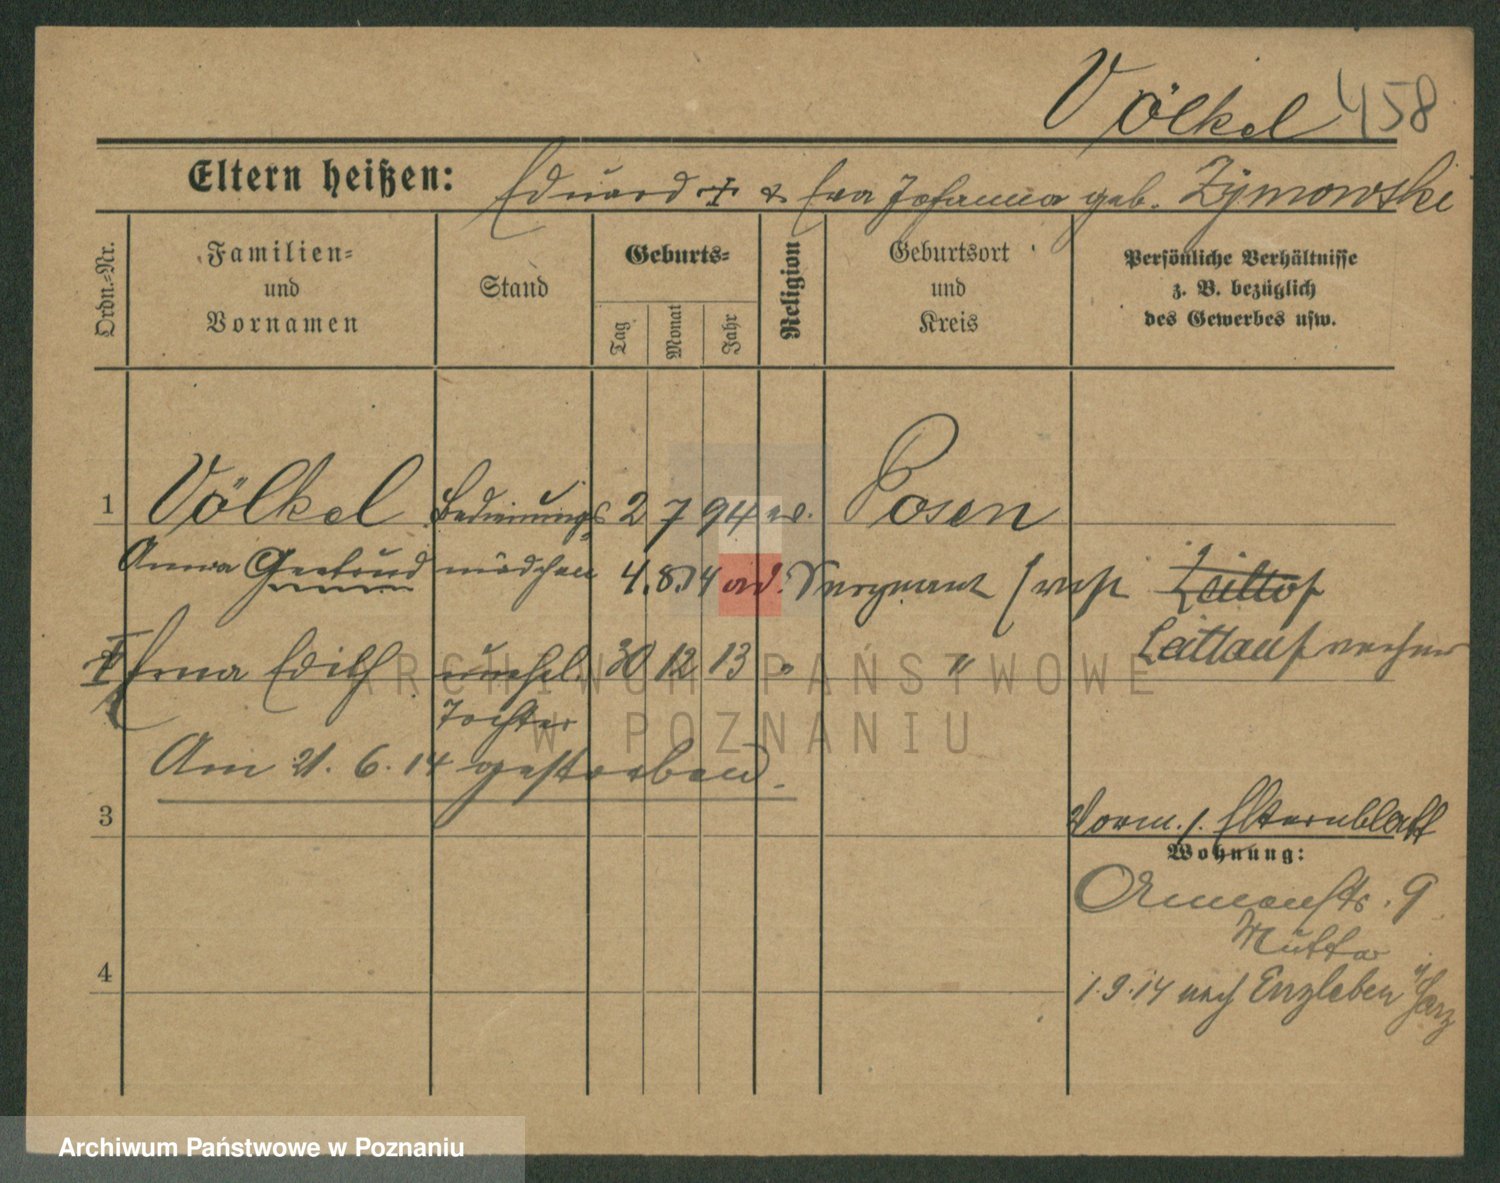 Völkel 458
Eltern heißen: Eduard + & Eva Johanna geb. Zymowski
Ordn.=Nr.
Familien=
und
Vornamen
Stand
Geburts=
Tag
Monat
Jahr
Religion
Geburtsort
und
Kreis
Persönliche Verhältnisse
z. B. bezüglich
des Gewerbes usw.
1 Völkel Bedienungs 2 7 94 Posen
Anna Gertrud mädchen 4.8.14
Erna Edith unehel. 30 12 13 " "
Tochter
Am 21. 6. 14 gestorben.
3
Vorm. 1. Elternblatt
Wohnung:
9
Mutter
4
1.9.14 nach Enzleben Harz
ARCHIWUM PAŃSTWOWE
W POZNANIU
Archiwum Państwowe w Poznaniu